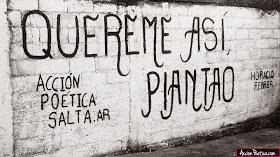 QUEREME ASÍ,
PIANTAO
ACCIÓN
POÉTICA
SALTA.AR
HORACIO
FERRER
AccionPoetica.com